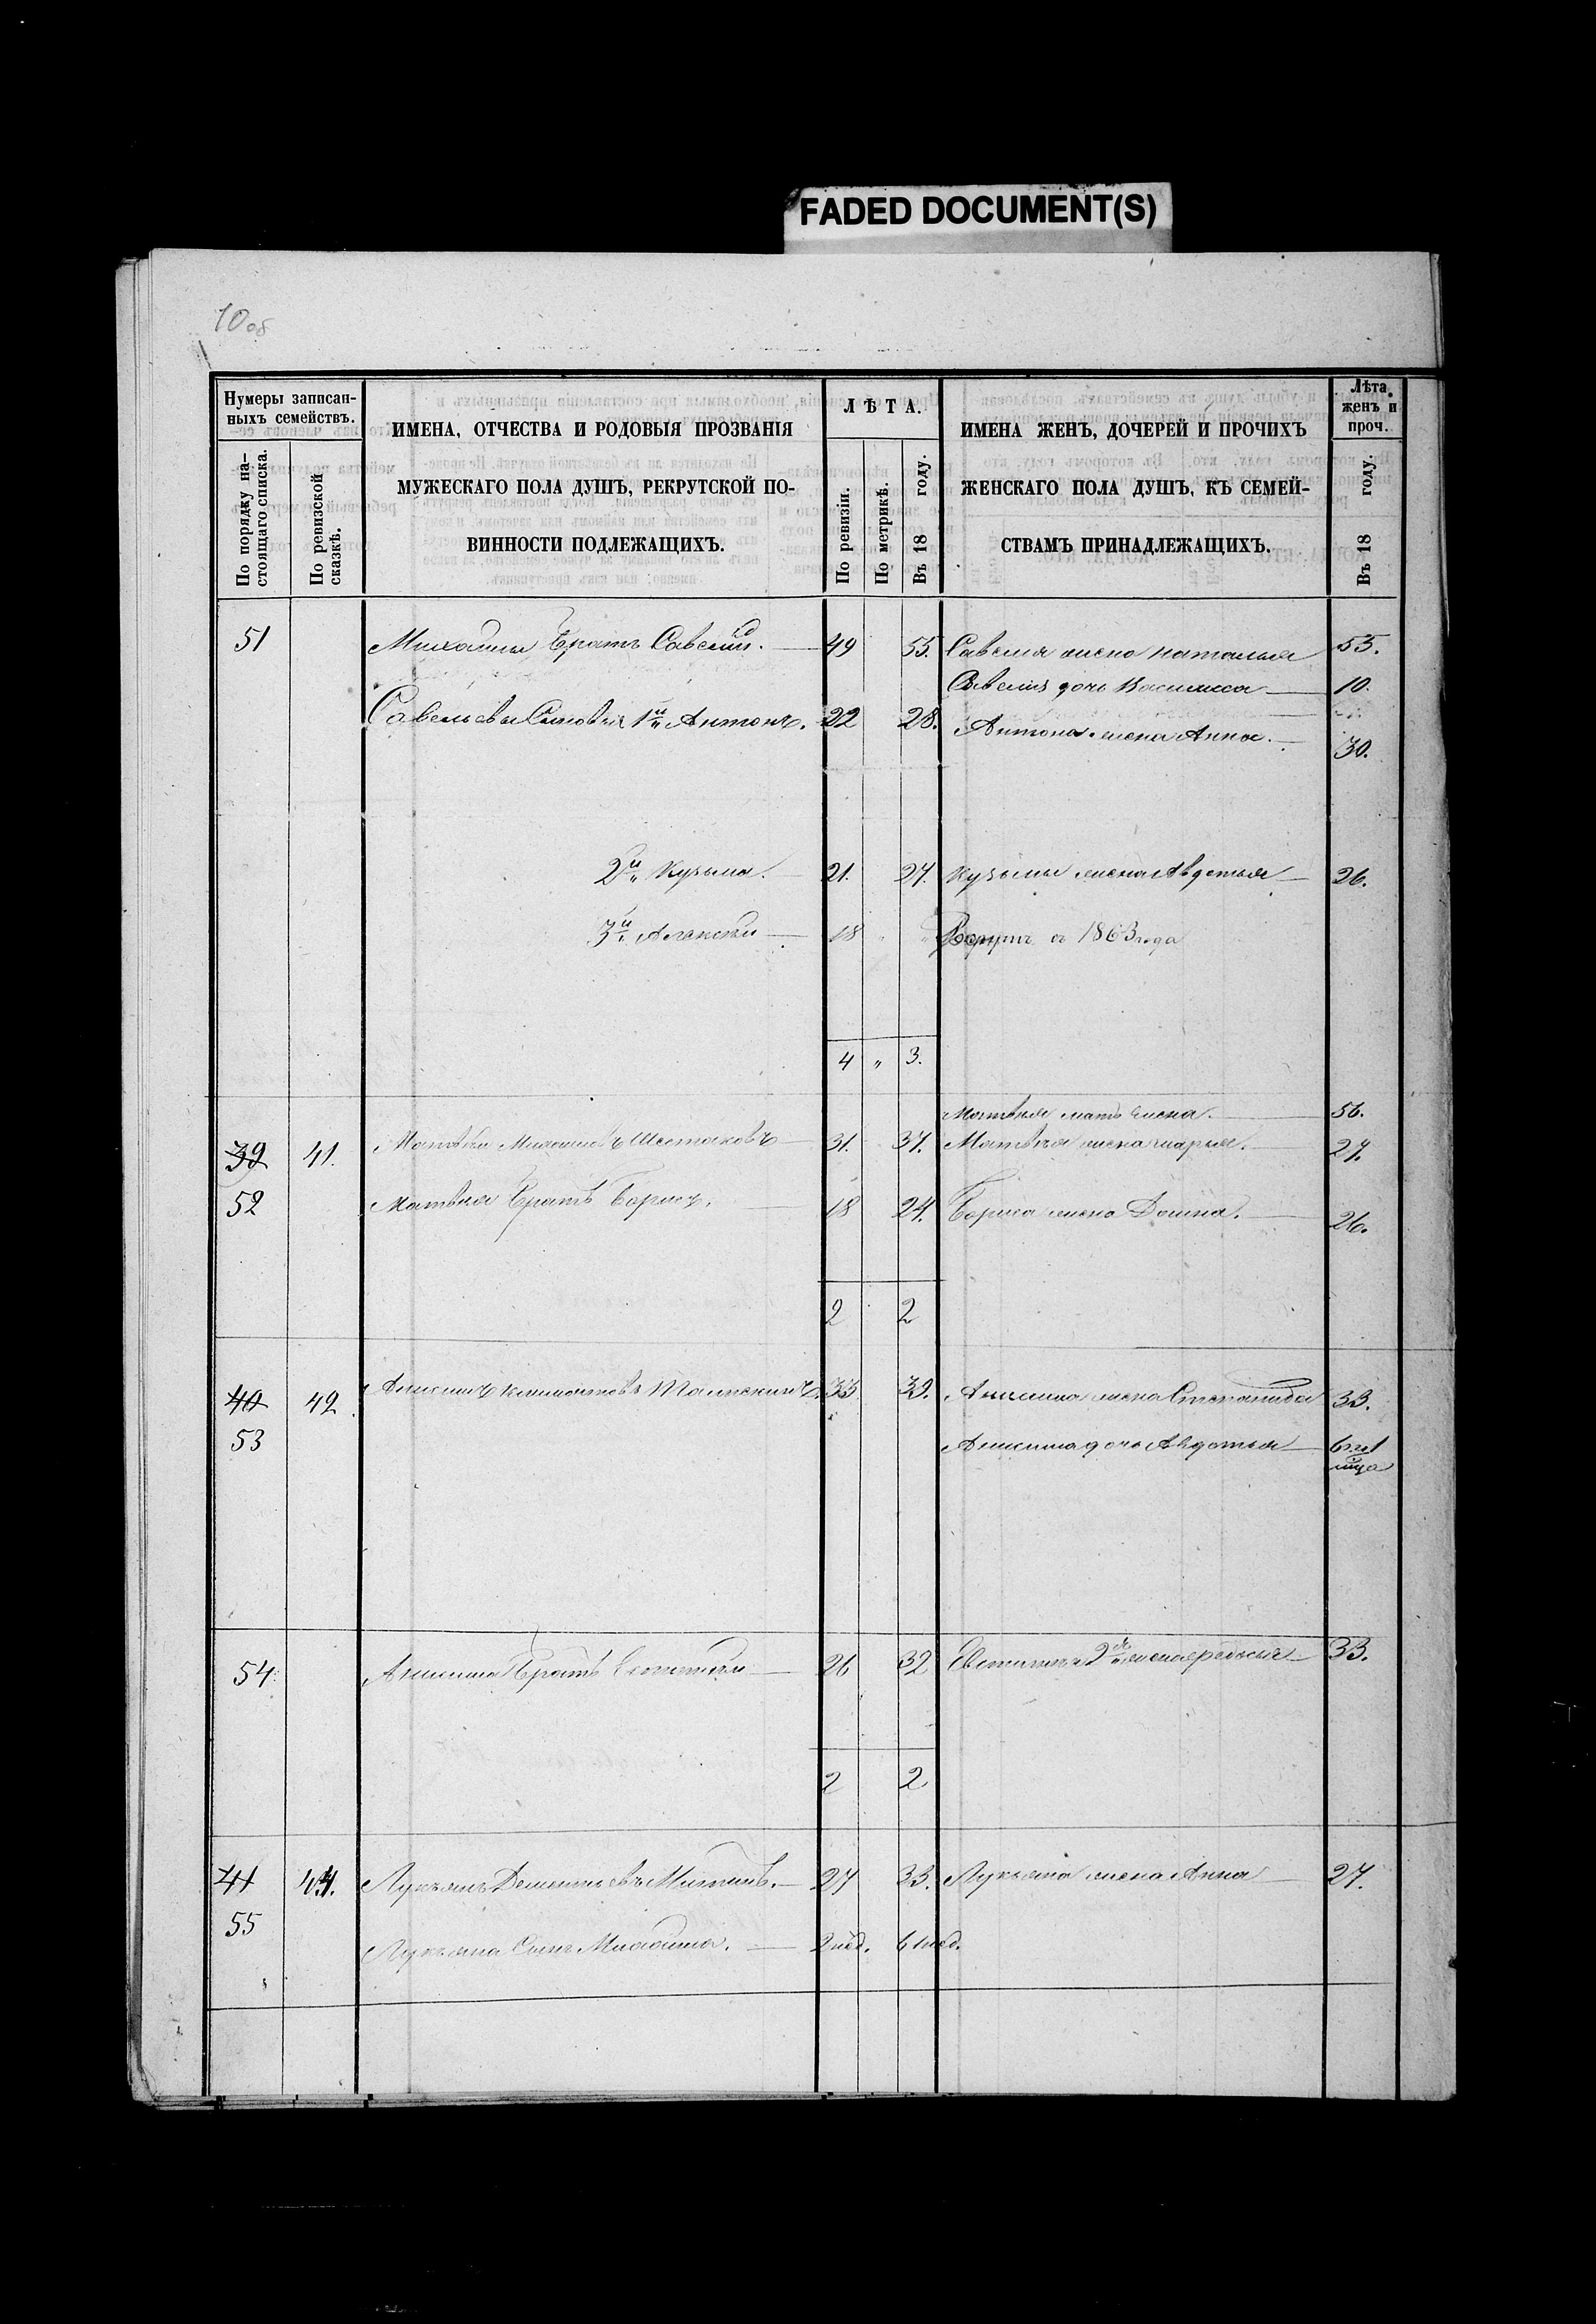 FADED DOCUMENT(S)
10 об
Нумеры записан-
ныхъ семействъ.
По порядку на-
стоящаго списка.
По ревизской
сказкѣ.
ИМЕНА, ОТЧЕСТВА И РОДОВЫЯ ПРОЗВАНІЯ
МУЖЕСКАГО ПОЛА ДУШЪ, РЕКРУТСКОЙ ПО-
ВИННОСТИ ПОДЛЕЖАЩИХЪ.
ЛѢТА.
По ревизіи.
По метрикѣ.
Въ 18 году.
ИМЕНА ЖЕНЪ, ДОЧЕРЕЙ И ПРОЧИХЪ
ЖЕНСКАГО ПОЛА ДУШЪ, КЪ СЕМЕЙ-
СТВАМЪ ПРИНАДЛЕЖАЩИХЪ.
Лѣта
женъ и
проч.
Въ 18 году.
51 Михаилы братъ Савелий. 49 55. Савелия жена Наталья 55.
Савелия дочь Василиса 10.
Савельевы Сыновья 1й Антонъ. 22 28. Антона жена Анна. 30.
2й Кузьма. 21. 27. Кузьмы жена Авдотья 26.
3й Алексѣй 18 Рекрутъ съ 1863 года
4 " 3.
Матвѣя мать 56.
39 41. Матвѣй Шестаковъ 31. 37. Матвѣя жена Марья. 27.
52 Матвѣя братъ Борисъ. 18 24. Бориса жена Домна. 26.
2 2
40 42 Анисимъ 33 39. Анисима жена Степанида 33.
53 Анисима дочь Авдотья
54 Анисима братъ 26 32 2я жена 33.
2 2
41 44. Лукьянъ Дементьевъ 27 33. Лукьяна жена Анна 27.
55 Лукьяна Сынъ 2 нед. 6